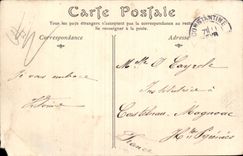 Carte Postale
Tous les pays étrangers n'acceptent pas la correspondance au recto
Se renseigner à la poste
Correspondance
Adresse
CONSTANTINE
Je vous embrasse
Institutrice à
Castelnau-Magnoac
Htes Pyrénées
France